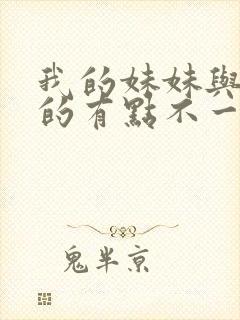 我的妹妹與
的有點不一
鬼半京